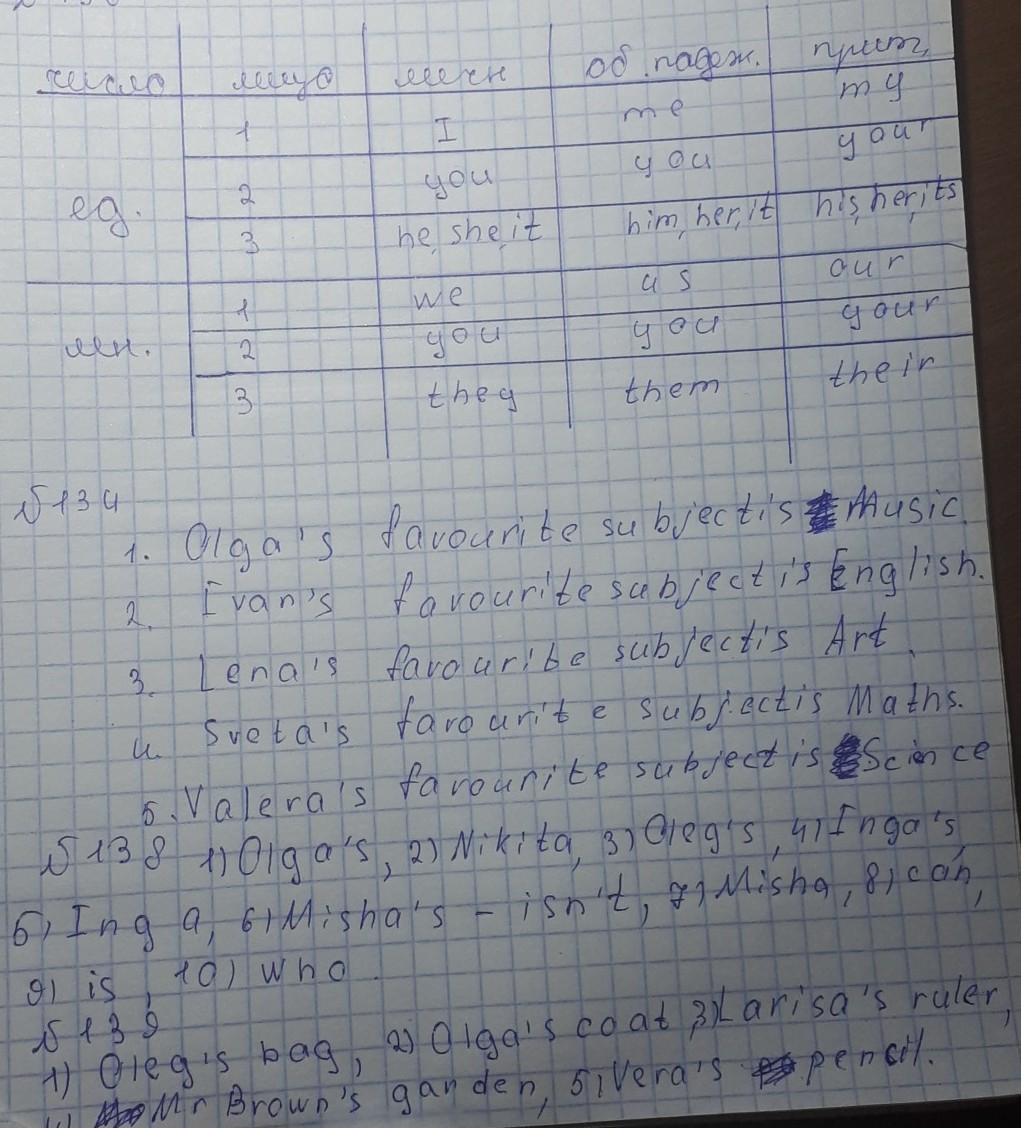 число лицо мест об. падеж. прит.
1 I me my
ед. 2 you you your
3 he, she, it him, her, it his, her, its
1 we us our
мн. 2 you you your
3 they them their
№134
1. Olga's favourite subject is Music.
2. Ivan's favourite subject is English.
3. Lena's favourite subject is Art.
4. Sveta's favourite subject is Maths.
5. Valera's favourite subject is Science
№138 1) Olga's, 2) Nikita, 3) Oleg's, 4) Inga's,
5) Inga, 6) Misha's - isn't, 7) Misha, 8) can,
9) is, 10) who.
№139
1) Oleg's bag, 2) Olga's coat, 3) Larisa's ruler,
4) Mr Brown's garden, 5) Vera's pencil.